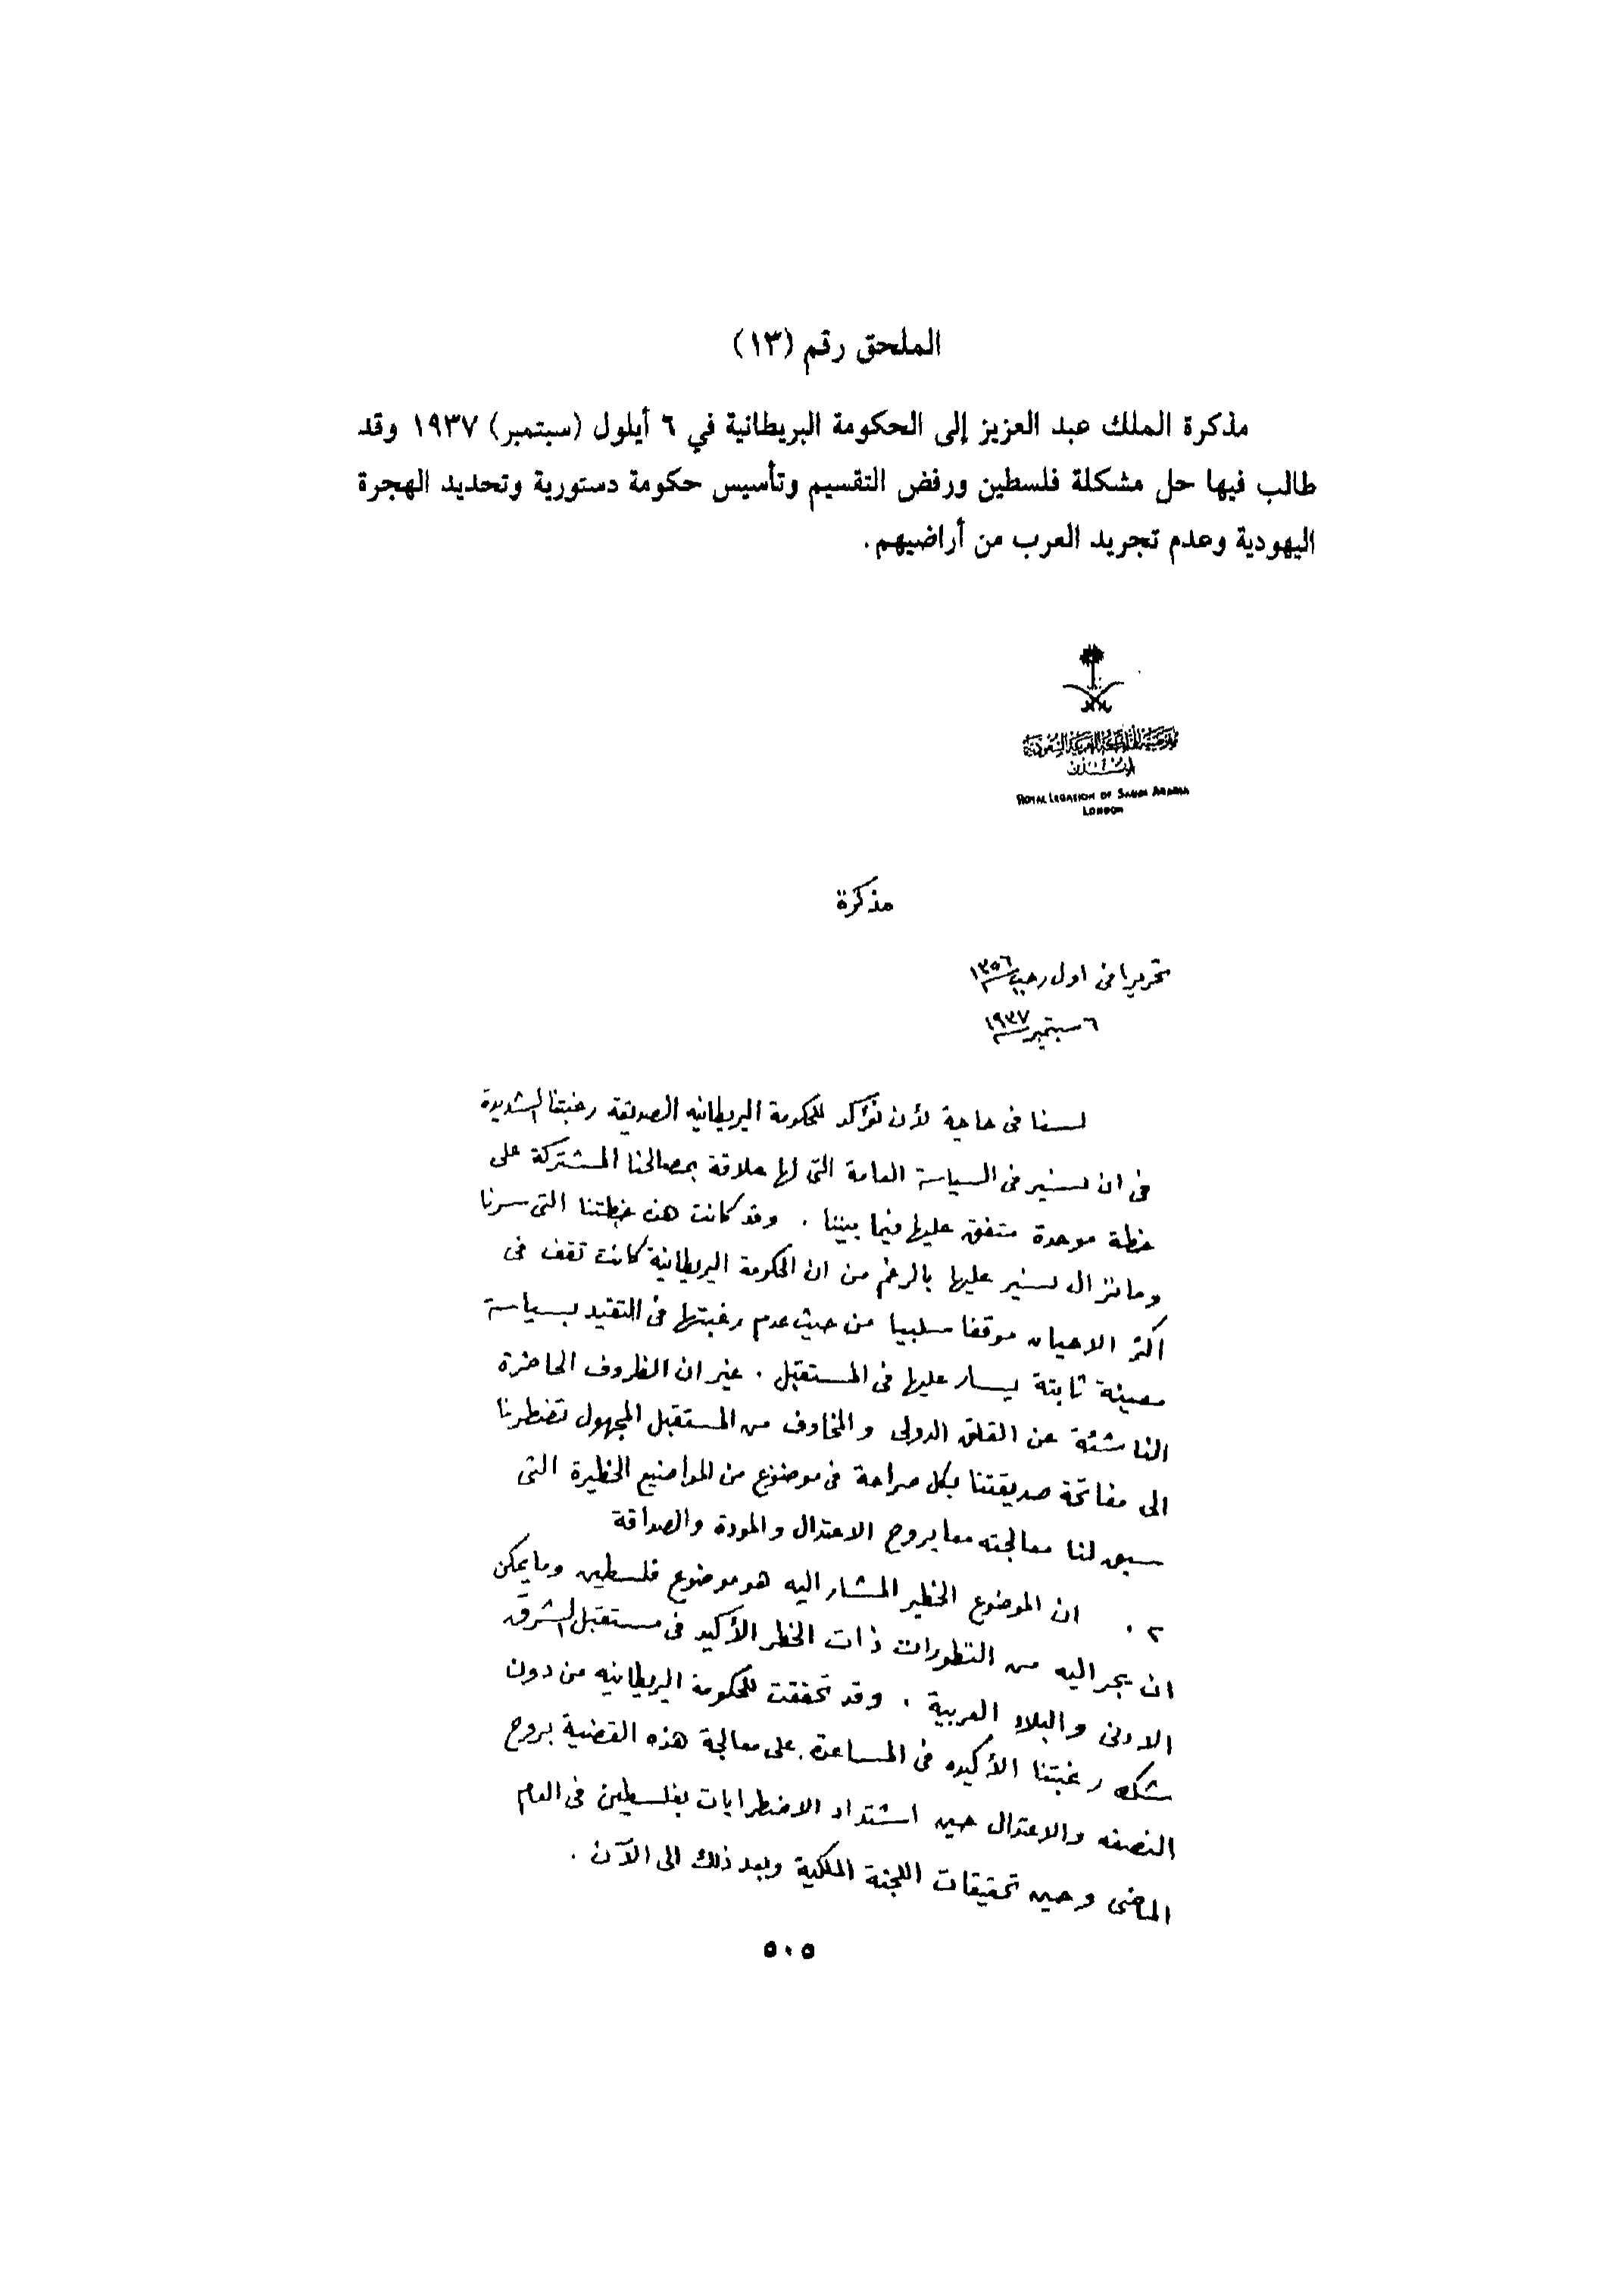 الملحق رقم (١٣)
مذكرة الملك عبد العزيز إلى الحكومة البريطانية في ٦ أيلول (سبتمبر) ١٩٣٧ وقد
طالب فيها حل مشكلة فلسطين ورفض التقسيم وتأسيس حكومة دستورية وتحديد الهجرة
اليهودية وعدم تجريد العرب من أراضيهم.
العربية السعودية
ROYAL LEGATION OF SAUDI ARABIA
LONDON
مذكرة
تحريرا فى اول رجب ١٣٥٦
٦ سبتمبر ١٩٣٧
لسنا فى حاجة لأن نؤكد للحكومة البريطانيه الصديقة رغبتنا الشديدة
فى ان نسير فى السياسة العامة التى لها علاقة بمصالحنا المشتركة على
خطة موحدة متفق عليها فيما بيننا . وقد كانت هذه خطتنا التى سرنا
وما نزال نسير عليها بالرغم من ان الحكومة البريطانية كانت تقف فى
اكثر الاحيان موقفا سلبيا من حيث عدم رغبتها فى التقيد بسياسة
معينة ثابتة يسار عليها فى المستقبل . غير ان الظروف الحاضرة
الناشئة عن القلق الدولى والمخاوف من المستقبل المجهول تضطرنا
الى مفاتحة صديقتنا بكل صراحة فى موضوع من المواضيع الخطيرة التى
سبق لنا معالجته معا بروح الاعتدال والمودة والصداقة
٢ . ان الموضوع الخطير المشار اليه هو موضوع فلسطين وما يمكن
ان يجر اليه من التطورات ذات الخطر الأكيد فى مستقبل الشرق
الادنى والبلاد العربية . وقد تحققت للحكومة البريطانيه من دون
شك رغبتنا الأكيده فى المساعدة على معالجة هذه القضية بروح
النصفه والاعتدال حين اشتداد الاضطرابات بفلسطين فى العام
الماضى وحين تحقيقات اللجنة الملكية وبعد ذلك الى الآن .
٥٠٥